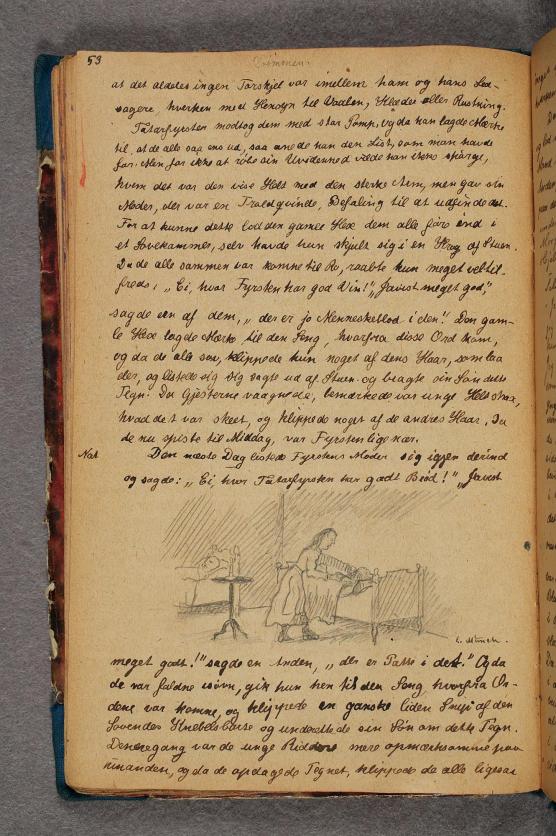 53
at det aldeles ingen Forskjel var imellem ham og hans Led-
sagere, hverken med Hensyn til Vaaben, Klæder eller Rustning.
Tatarfyrsten modtog dem med stor Pomp, og da han lagde Mærke
til, at de alle saa ens ud, saa anede han den List, som man havde
for. Men for ikke at røbe sin Uvidenhed vilde han ikke spørge,
hvem det var den vise Helt med den sterke Arm, men gav sin
Moder, der var en Troldqvinde, Befaling til at udfinde det.
For at kunne dette lod den gamle Hex dem alle føre ind i
et Sovekammer, selv havde hun skjult sig i en Krog af Stuen.
Da de alle sammen var komne til Ro, raabte hun meget veltil-
freds: „Ei, hvor Fyrsten har god Vin!" „Javist meget god,"
sagde en af dem, „der er jo Menneskeblod i den!" Den gam-
le Hex lagde Mærke til den Seng, hvorfra disse Ord kom,
og da de alle sov, klippede hun noget af dens Haar, som laa
der, og listede sig sagte ud af Stuen og bragte sin Søn dette
Tegn. Da Gjesterne vaagnede, bemærkede vor unge Helt strax,
hvad det var skeet, og klippede noget af de andres Haar. Da
de nu spiste til Middag, var Fyrsten lige nær.
Nat
Den næste Dag listede Fyrstens Moder sig igjen derind
og sagde: „Ei, hvor Tatarfyrsten har godt Brød!" „Javist
L. Munch.
meget godt!" sagde en Anden, „der er Patte i det." Og da
de var faldne isøvn, gik hun hen til den Seng, hvorfra Or-
dene var komne, og klippede en ganske liden Snip af den
Sovendes Knebelsbarse og underettede sin Søn om dette Tegn.
Denne gang var de unge Riddere mere opmærksomme paa
hinanden, og da de opdagede Tegnet, klippede de alle ligesaa